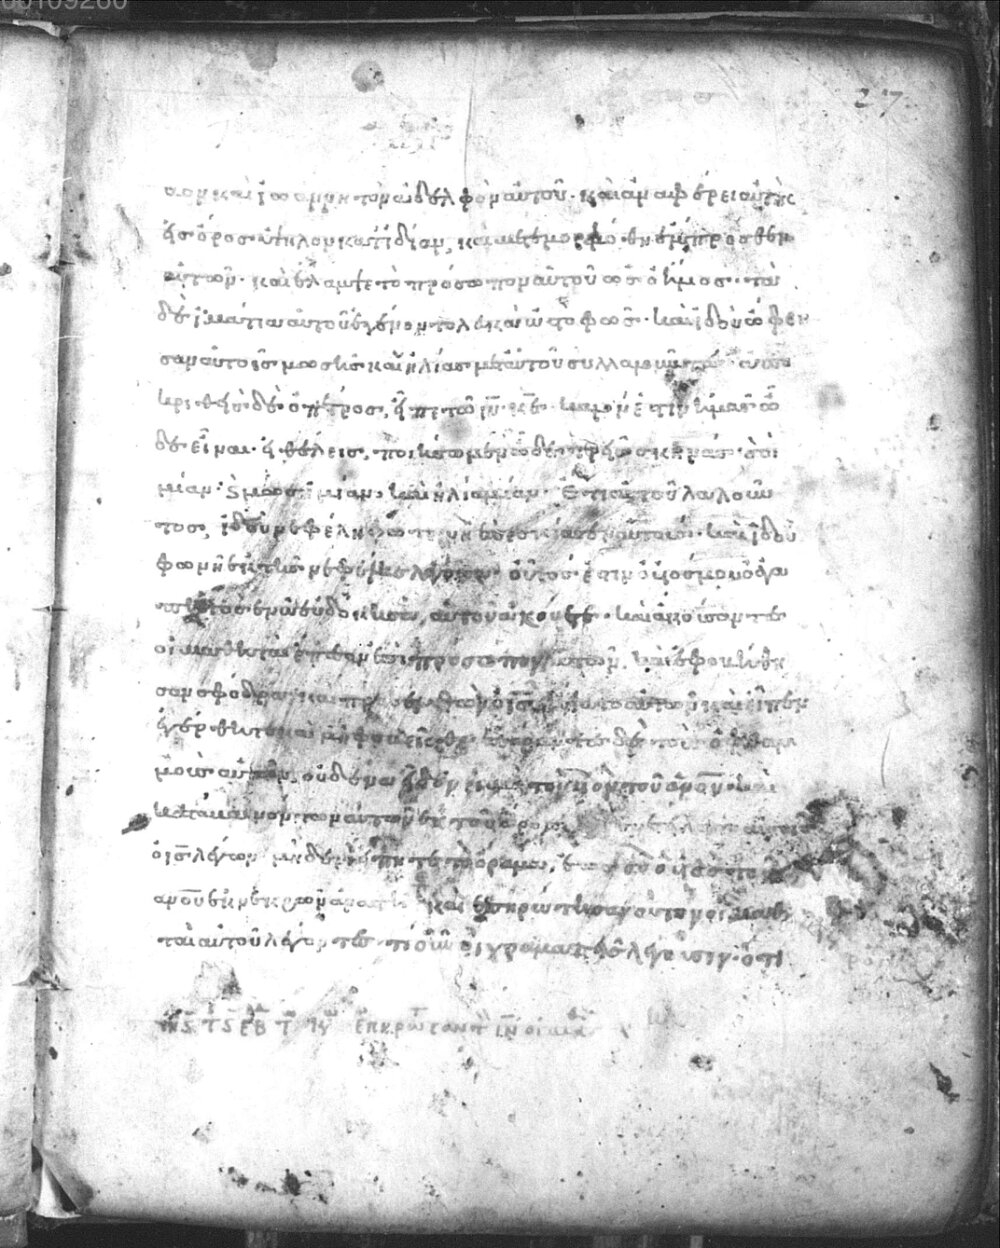 27
βον καὶ ἰωάννην τὸν ἀδελφὸν αὐτοῦ· καὶ ἀναφέρει αὐτοὺς
εἰς ὄρος ὑψηλὸν κατ ἰδίαν, καὶ μετεμορφώθη ἔμπροσθεν
αὐτῶν· καὶ ἔλαμψε τὸ πρόσωπον αὐτοῦ ὡς ὁ ἥλιος· τὰ
δὲ ἱμάτια αὐτοῦ ἐγένοντο λευκὰ ὡς τὸ φῶς· καὶ ἰδοὺ ὤφθη
σαν αὐτοῖς μωσῆς καὶ ἠλίας μετ αὐτοῦ συλλαλοῦντες· ἀπο
κριθεὶς δὲ ὁ πέτρος, εἶπε τῶ ιυ κε· καλόν ἐστιν ἡμᾶς ὧ
δε εἶναι· εἰ θέλεις, ποιήσωμεν ὧδε τρεῖς σκηνάς· σοὶ
μίαν· ϗ μωσῆ μίαν· καὶ ἠλία μίαν· ἔτι αὐτοῦ λαλοῦν
τος, ἰδοὺ νεφέλη φωτεινὴ ἐπεσκίασεν αὐτούς· καὶ ἰδοὺ
φωνὴ ἐκ τῆς νεφέλης λέγουσα· οὗτός ἐστιν ὁ υἱός μου ὁ ἀγα
πητὸς ἐν ὧ εὐδόκησα, αὐτοῦ ἀκούετε· καὶ ἀκούσαντες
οἱ μαθηταὶ ἔπεσαν ἐπὶ πρόσωπον αὐτῶν, καὶ ἐφοβήθη
σαν σφόδρα· καὶ προσελθὼν ὁ ις ἥψατο αὐτῶν καὶ εἶπεν
ἐγέρθητε καὶ μὴ φοβεῖσθε· ἐπάραντες δὲ τοὺς ὀφθαλ
μοὺς αὐτῶν, οὐδένα εἶδον
καταβαινόντων αὐτῶν ἐκ τοῦ ὄρους
ὁ ις λέγων μηδενὶ εἴπητε τὸ ὅραμα, ἕως οὗ ὁ υἱὸς τοῦ
ανου ἐκ νεκρῶν ἀναστῆ· καὶ ἐπηρώτησαν αὐτὸν οἱ μαθη
ταὶ αὐτοῦ λέγοντες· τί οὖν οἱ γραμματεῖς λέγουσιν· ὅτι
ἐπηρώτησαν τὸν ιν οἱ μαθ